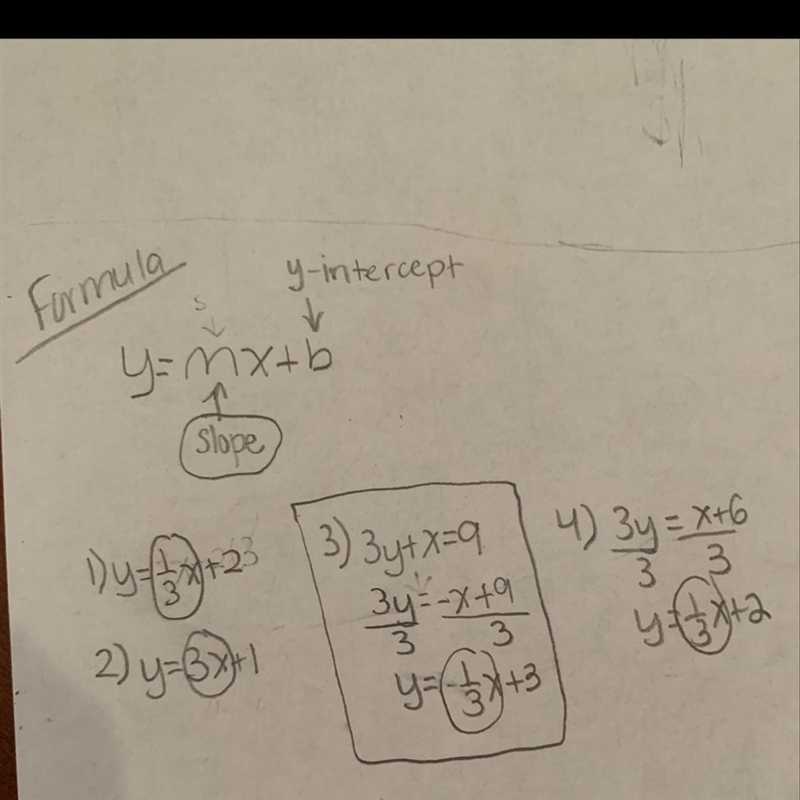 Formula
y-intercept
s
y=mx+b
slope
1) y=1/3x+2
2) y=3x+1
3) 3y+x=9
3y/3=-x+9/3
y=-1/3x+3
4) 3y/3=x+6/3
y=1/3x+2